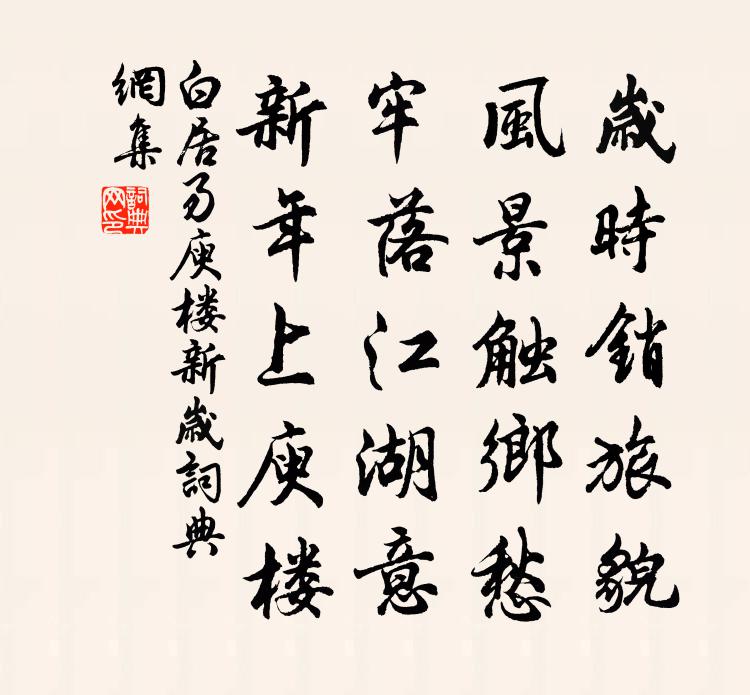 歲時銷旅貌
風景触鄉愁
牢落江湖意
新年上庾楼
白居易庾楼新歲詞典
網集
詞典
网印